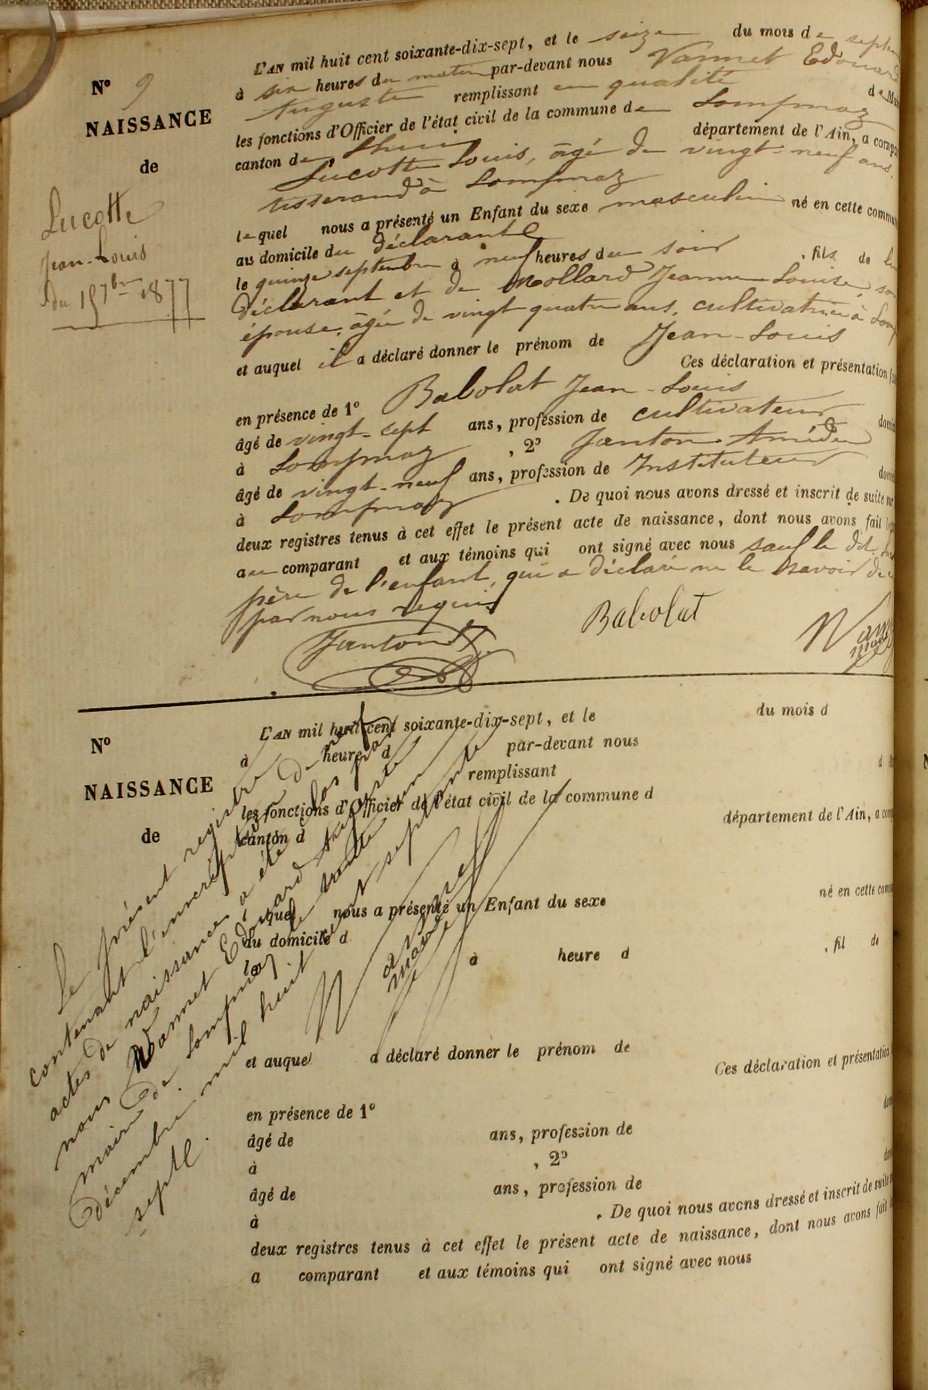 N° 9
NAISSANCE
de
Lucotte
Jean-Louis
du 15 7bre 1877
L'AN mil huit cent soixante-dix-sept, et le seize du mois de septe
à six heures du matin par-devant nous Vannet Edouard
Auguste remplissant en qualité de M
les fonctions d'Officier de l'état civil de la commune de Lompnaz
canton de Lhuis département de l'Ain, a compa
Lucotte Louis, âgé de vingt-neuf ans,
tisserand à Lompnaz
lequel nous a présenté un Enfant du sexe masculin né en cette commu
au domicile du déclarant
le quinze septembre à neuf heures du soir, fils de
déclarant et de Mollard Jeanne Louise, son
épouse, âgée de vingt quatre ans, cultivatrice à Lomp
et auquel il a déclaré donner le prénom de Jean-Louis
Ces déclaration et présentation
en présence de 1° Babolat Jean-Louis
âgé de vingt-sept ans, profession de cultivateur
à Lompnaz, 2° Janton Amédée
âgé de vingt-neuf ans, profession de Instituteur
à Lompnaz. De quoi nous avons dressé et inscrit de suite
deux registres tenus à cet effet le présent acte de naissance, dont nous avons fait
au comparant et aux témoins qui ont signé avec nous sauf le dit
père de l'enfant, qui a déclaré ne le savoir de
par nous requis
Janton Babolat Vannet
maire
N°
NAISSANCE
de
L'AN mil huit cent soixante-dix-sept, et le du mois d
à heure d par-devant nous
remplissant
les fonctions d'Officier de l'état civil de la commune d
canton d département de l'Ain, a com
lequel nous a présenté un Enfant du sexe né en cette comm
au domicile d
le à heure d, fil de
et auquel a déclaré donner le prénom de
Ces déclaration et présentation
en présence de 1°
âgé de ans, profession de
à, 2°
âgé de ans, profession de
à. De quoi nous avons dressé et inscrit de suite
deux registres tenus à cet effet le présent acte de naissance, dont nous avons fait
a comparant et aux témoins qui ont signé avec nous
Le présent registre de neuf
contenant l'inscription des
actes de naissances a été clos par
nous Vannet Edouard Auguste
maire de Lompnaz le trente un
décembre mil huit cent septante
sept.
Vannet
maire